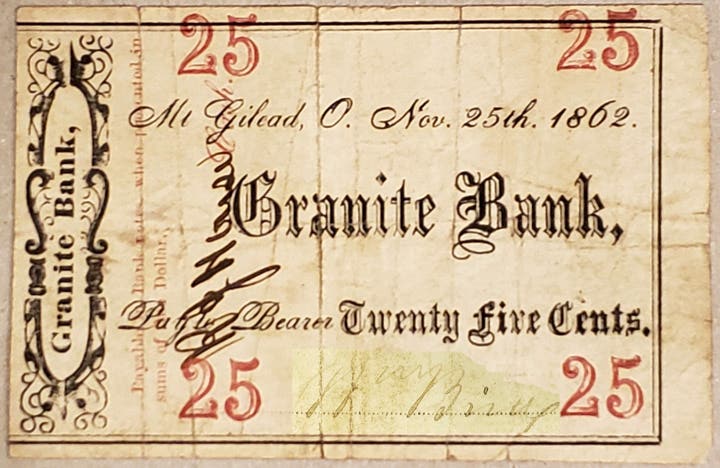 25 25
Mt Gilead, O. Nov. 25th. 1862.
Granite Bank,
Pay to Bearer Twenty Five Cents.
25 25
Granite Bank,
Payable in Bank notes when presented in
sums of Dollar,